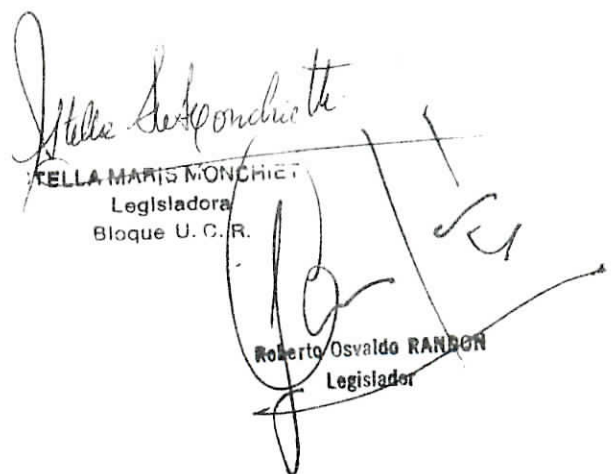 TELLA MARIS MONCHIET
Legisladora
Bloque U. C. R.
Roberto Osvaldo RANDON
Legislador